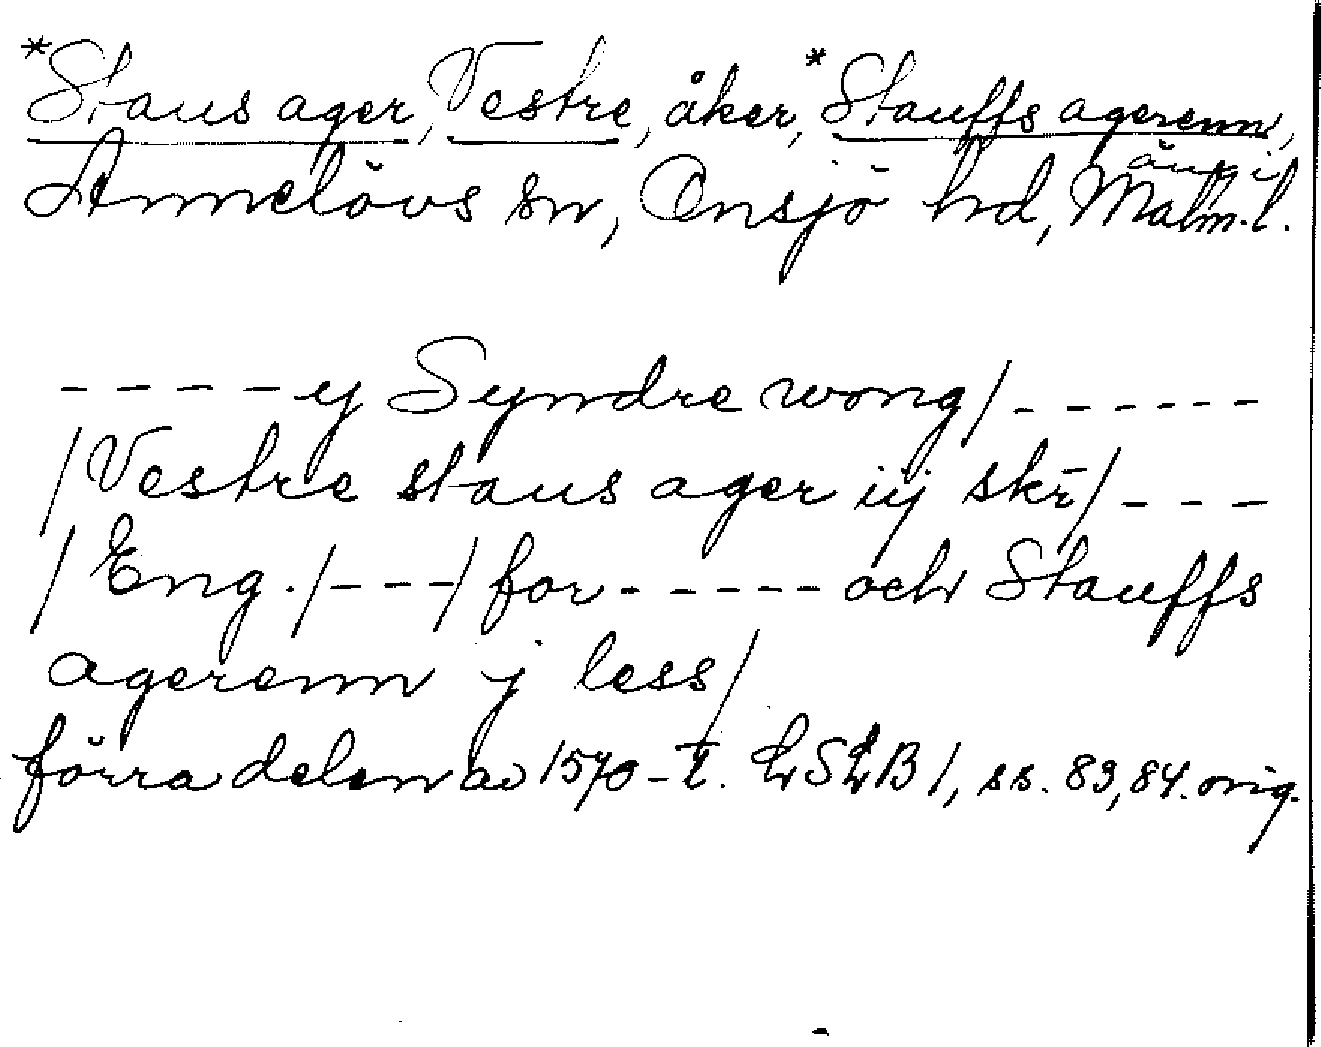 *Staus ager, Vestre, åker, *Stauffs agerenn,
äng i
Annelövs sn, Onsjö hd, Malm.l.
- - - - - ej Syndre wong/ - - - - - -
/Vestre staus ager iij skr̄/ - - -
/Eng./ - - -/ for - - - - - och Stauffs
agerenn j less/
förra delen av 1570-t. LSLB 1, ss. 83, 84. orig.